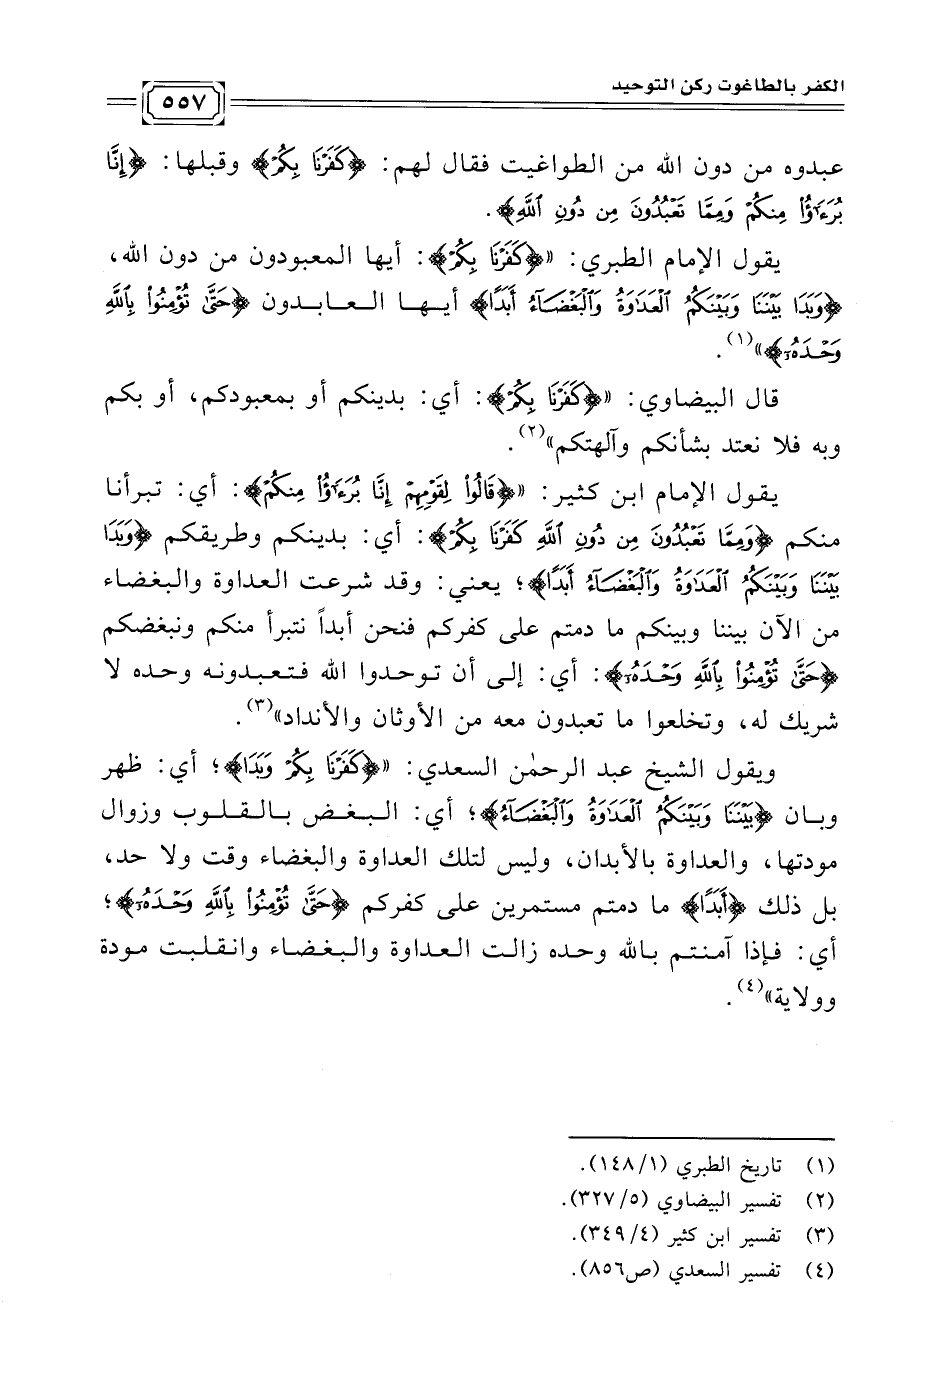 الكفر بالطاغوت ركن التوحيد
٥٥٧
عبدوه من دون الله من الطواغيت فقال لهم: ﴿كَفَرْنَا بِكُمْ﴾ وقبلها: ﴿إِنَّا
بُرَءَٰٓؤُا۟ مِنكُمْ وَمِمَّا تَعْبُدُونَ مِن دُونِ ٱللَّهِ﴾.
يقول الإمام الطبري: «﴿كَفَرْنَا بِكُمْ﴾: أيها المعبودون من دون الله،
﴿وَبَدَا بَيْنَنَا وَبَيْنَكُمُ ٱلْعَدَٰوَةُ وَٱلْبَغْضَآءُ أَبَدًا﴾ أيها العابدون ﴿حَتَّىٰ تُؤْمِنُوا۟ بِٱللَّهِ
وَحْدَهُۥٓ﴾»(١).
قال البيضاوي: «﴿كَفَرْنَا بِكُمْ﴾: أي: بدينكم أو بمعبودكم، أو بكم
وبه فلا نعتد بشأنكم وآلهتكم»(٢).
يقول الإمام ابن كثير: «﴿قَالُوا۟ لِقَوْمِهِمْ إِنَّا بُرَءَٰٓؤُا۟ مِنكُمْ﴾: أي: تبرأنا
منكم ﴿وَمِمَّا تَعْبُدُونَ مِن دُونِ ٱللَّهِ كَفَرْنَا بِكُمْ﴾: أي: بدينكم وطريقكم ﴿وَبَدَا
بَيْنَنَا وَبَيْنَكُمُ ٱلْعَدَٰوَةُ وَٱلْبَغْضَآءُ أَبَدًا﴾؛ يعني: وقد شرعت العداوة والبغضاء
من الآن بيننا وبينكم ما دمتم على كفركم فنحن أبداً نتبرأ منكم ونبغضكم
﴿حَتَّىٰ تُؤْمِنُوا۟ بِٱللَّهِ وَحْدَهُۥٓ﴾: أي: إلى أن توحدوا الله فتعبدونه وحده لا
شريك له، وتخلعوا ما تعبدون معه من الأوثان والأنداد»(٣).
ويقول الشيخ عبد الرحمٰن السعدي: «﴿كَفَرْنَا بِكُمْ وَبَدَا﴾؛ أي: ظهر
وبان ﴿بَيْنَنَا وَبَيْنَكُمُ ٱلْعَدَٰوَةُ وَٱلْبَغْضَآءُ﴾؛ أي: البغض بالقلوب وزوال
مودتها، والعداوة بالأبدان، وليس لتلك العداوة والبغضاء وقت ولا حد،
بل ذلك ﴿أَبَدًا﴾ ما دمتم مستمرين على كفركم ﴿حَتَّىٰ تُؤْمِنُوا۟ بِٱللَّهِ وَحْدَهُۥٓ﴾؛
أي: فإذا آمنتم بالله وحده زالت العداوة والبغضاء وانقلبت مودة
وولاية»(٤).
(١) تاريخ الطبري (١/١٤٨).
(٢) تفسير البيضاوي (٥/٣٢٧).
(٣) تفسير ابن كثير (٤/٣٤٩).
(٤) تفسير السعدي (ص٨٥٦).